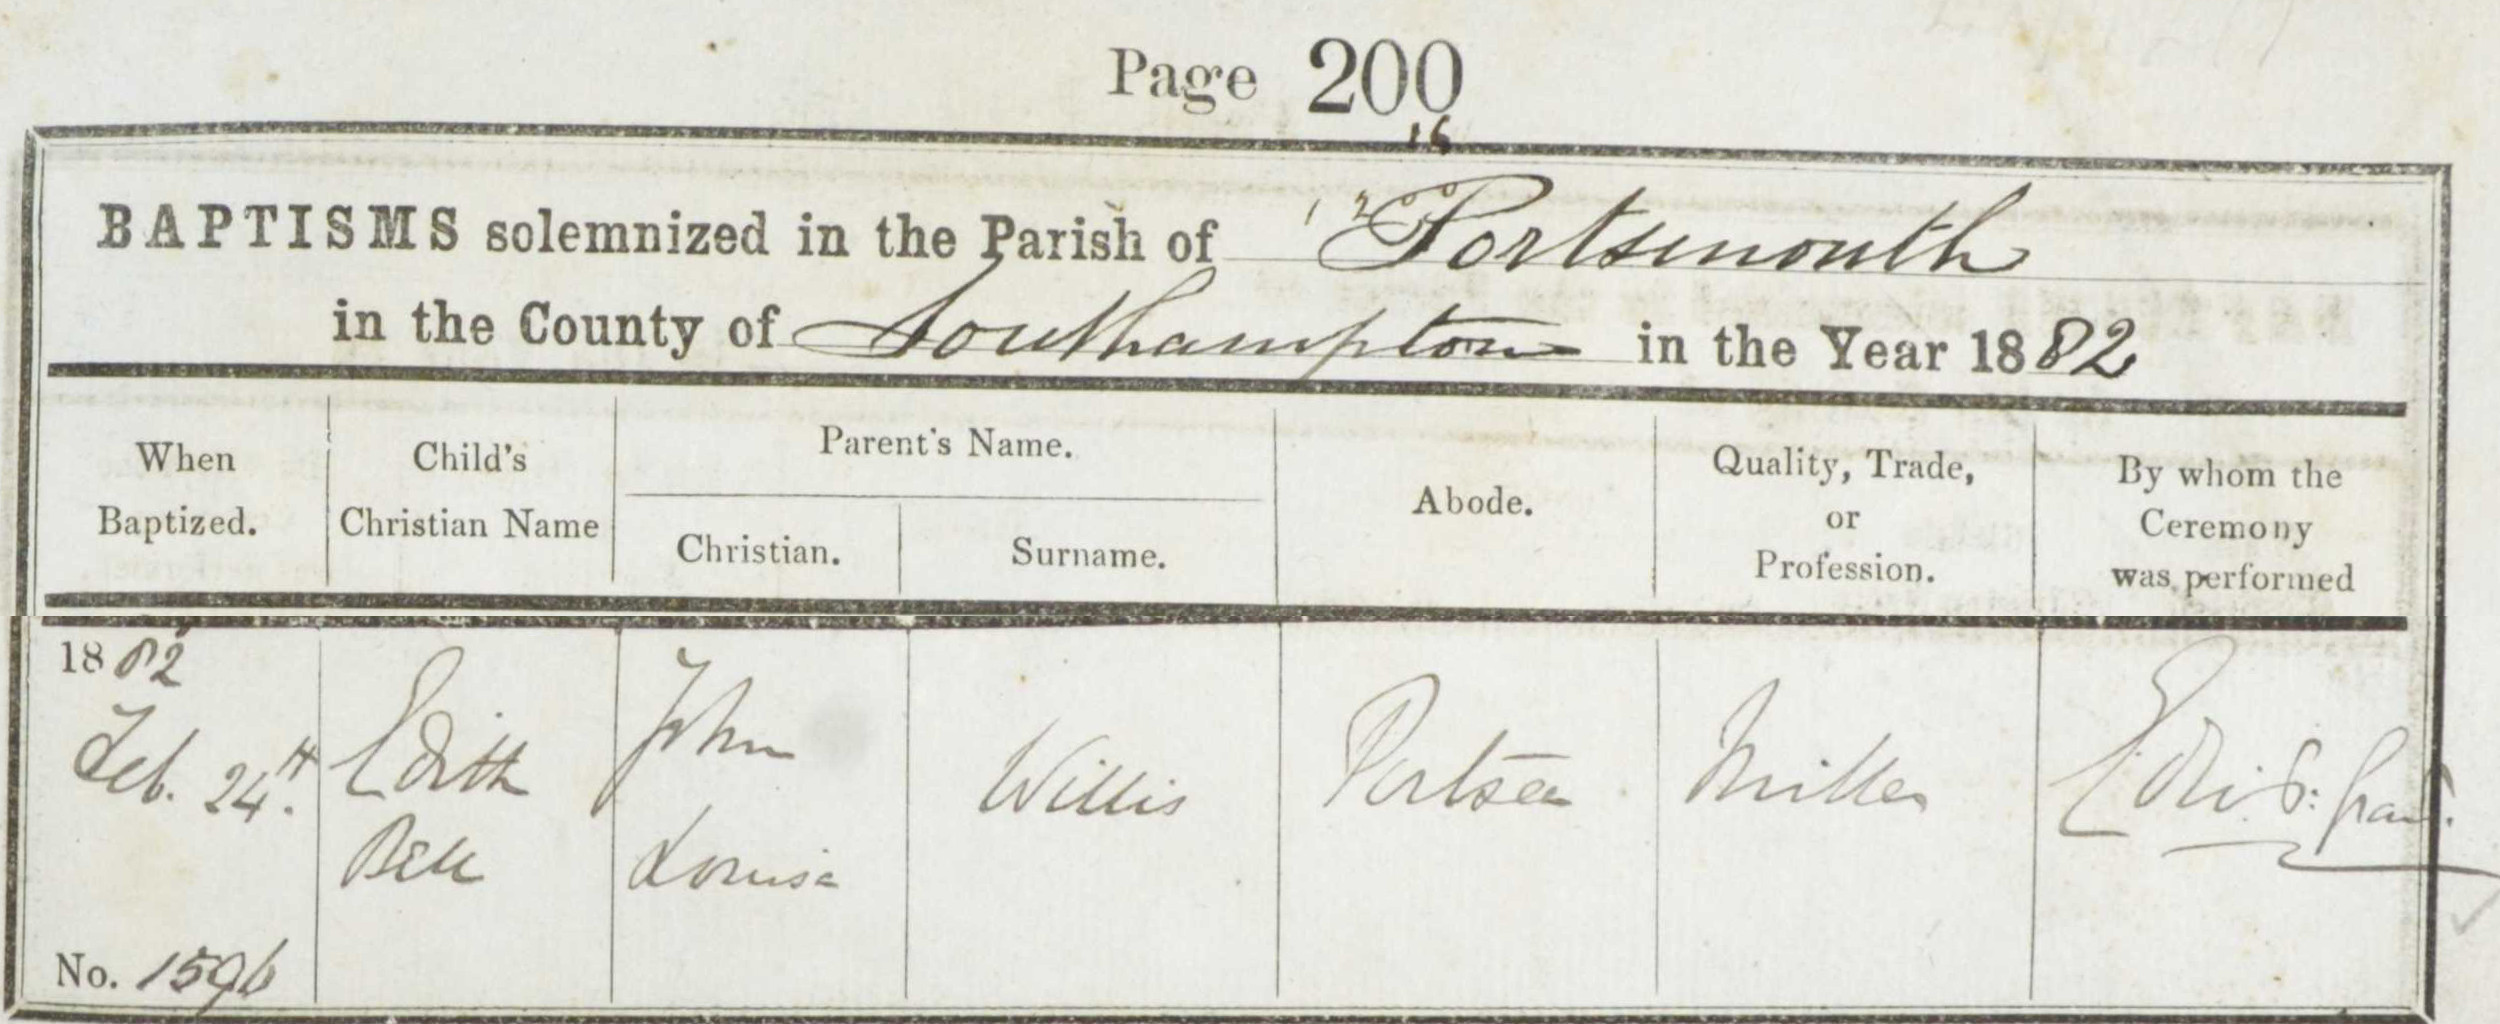 Page 200
16
1200
BAPTISMS solemnized in the Parish of Portsmouth
in the County of Southampton in the Year 1882
When Baptized.
Child's Christian Name
Parent's Name.
Christian.
Surname.
Abode.
Quality, Trade, or Profession.
By whom the Ceremony was performed
1882
Feb. 24th.
Edith
Bell
John
Louisa
Willis
Portsea
Miller
No. 1596